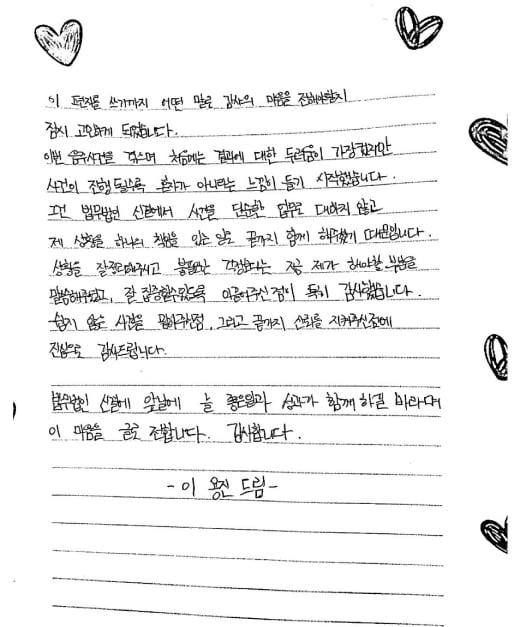 이 편지를 쓰기까지 어떤 말로 감사의 마음을 전해야할지
잠시 고민하게 되었습니다.
이번 음주사건을 겪으며 처음에는 결과에 대한 두려움이 가장컸지만
사건이 진행될수록 혼자가 아니라는 느낌이 들기 시작했습니다.
그건 법무법인 신결에서 사건을 단순한 업무로 대하지 않고
제 상황을 하나의 책임 있는 일로 끝까지 함께 해주셨기 때문입니다.
상황을 잘 해주시고 불필요한 걱정보다는 지금 제가 해야할 부분을
말씀해주셨고, 잘 집중할수있도록 이끌어주신 점이 특히 감사했습니다.
쉽지 않은 사건을 맡아주신점, 그리고 끝까지 신뢰를 지켜주신점에
진심으로 감사드립니다.
법무법인 신결에 앞날에 늘 좋은일과 성과가 함께 하길 바라며
이 마음을 글로 전합니다. 감사합니다.
- 이 용진 드림 -